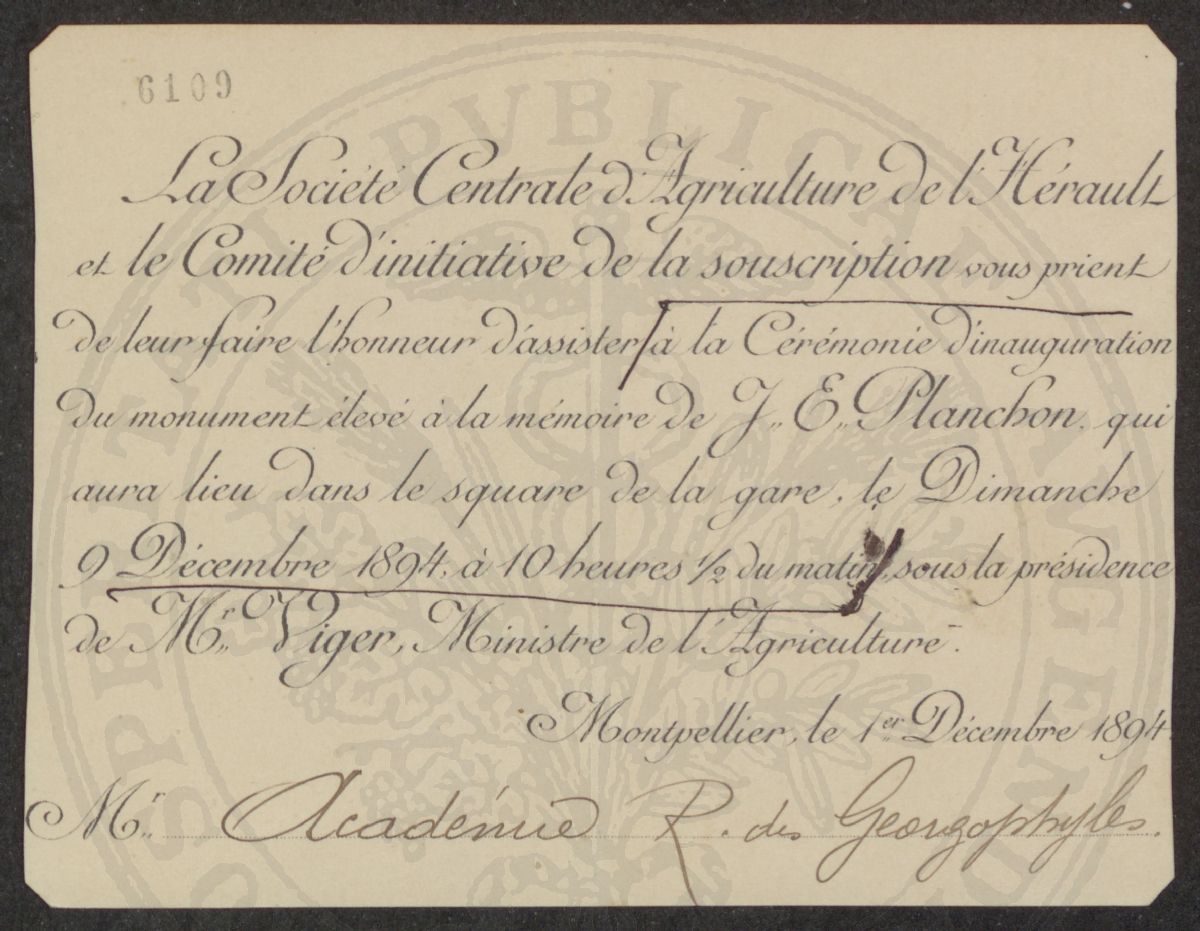 6109
La Société Centrale d'Agriculture de l'Hérault
et le Comité d'initiative de la souscription vous prient
de leur faire l'honneur d'assister à la Cérémonie d'inauguration
du monument élevé à la mémoire de J. E. Planchon, qui
aura lieu dans le square de la gare, le Dimanche
9 Décembre 1894, à 10 heures 1/2 du matin, sous la présidence
de Mr. Viger, Ministre de l'Agriculture.
Montpellier, le 1er Décembre 1894.
Mr. Académie R. des Georgophyles.
PROSPERITATI PUBLICAE AUGENDAE